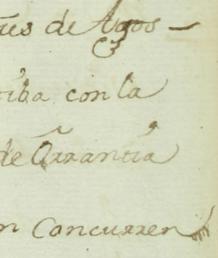 res de Agos-
riba con la
de Orrantia
n Concurren